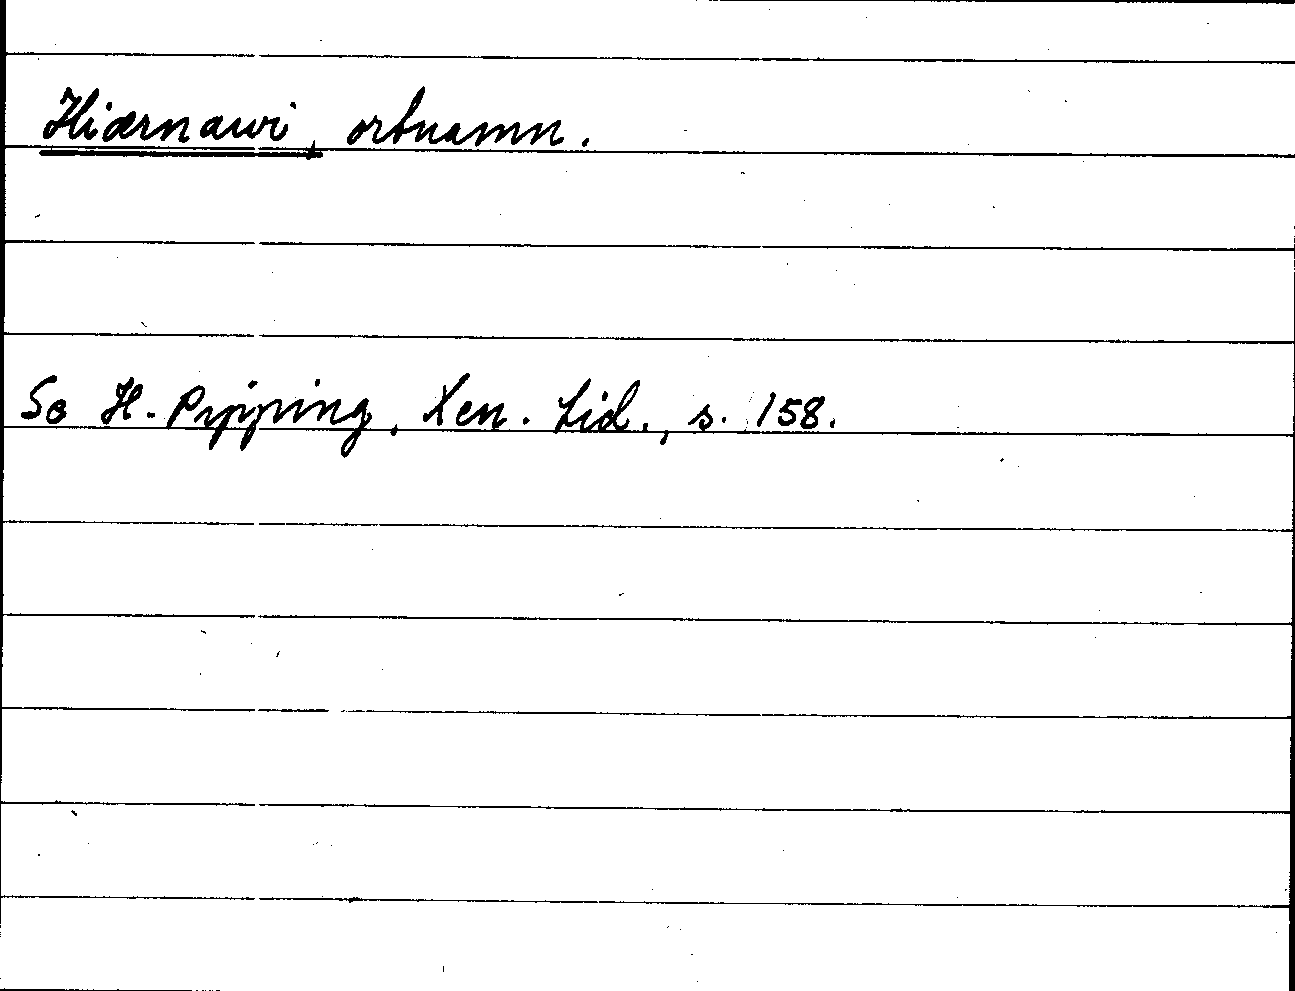 Hiærnawi, ortnamn.
Se H. Pipping, Xen. Lid., s. 158.